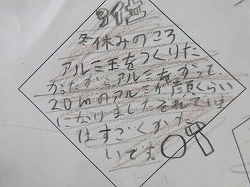 3位
冬休みのころ
アルミ玉をつくりた
かたからアルミをかって、
20mのアルミが頭くらい
になりましたそれていま
はすごくかた
いです。